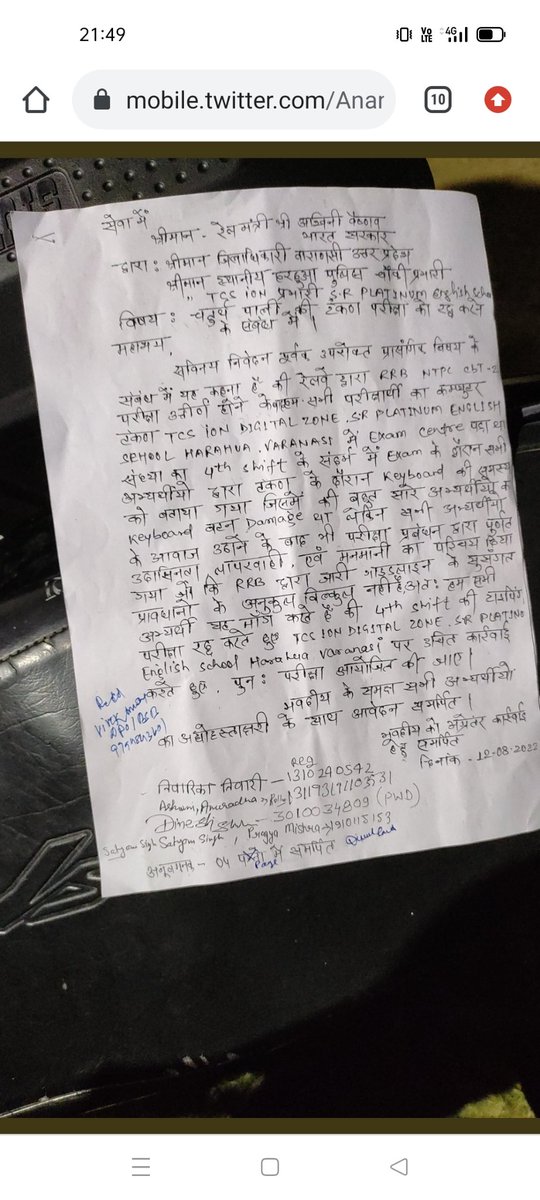 21:49
4G
mobile.twitter.com/Anar
10
सेवा में
श्रीमान - रेल मंत्री श्री अश्विनी वैष्णव
भारत सरकार
द्वारा : श्रीमान जिलाधिकारी वाराणसी उत्तर प्रदेश
श्रीमान स्थानीय हरहुआ पुलिस चौकी प्रभारी
,, TCS iON प्रभारी S.R PLATINUM English School
विषय : चतुर्थ पाली की टंकण परीक्षा को रद्द करने
के संबंध में।
महाशय,
सविनय निवेदन पूर्वक उपरोक्त प्रासंगिक विषय के
संबंध में यह कहना है की रेलवे द्वारा RRB NTPC CBT-2
परीक्षा उत्तीर्ण होने के सभी परीक्षार्थी का कम्प्युटर
टंकण TCS iON DIGITAL ZONE. SR PLATINUM ENGLISH
SCHOOL HARAHUA. VARANASI में Exam Centre पड़ा था
संध्या का 4th shift के संदर्भ में Exam के दौरान सभी
अभ्यर्थीयो द्वारा टंकण के दौरान Keyboard की समस्या
को बताया गया जिसमें की बहुत सारे अभ्यर्थीयो के
Keyboard बटन Damage था लेकिन सभी अभ्यर्थीयो
के आवाज उठाने के बाद भी परीक्षा प्रबंधन द्वारा पूर्णत
उदासिनता लापरवाही, एवं मनमानी का परिचय दिया
गया जो कि RRB द्वारा जारी गाइडलाइन के सुसंगत
प्रावधानो के अनुकूल बिल्कुल नहीं है, अतः हम सभी
अभ्यर्थी यह मांग करते है की 4th shift की टाइपिंग
परीक्षा रद्द करते हुए TCS ION DIGITAL ZONE. SR PLATINO
English School Harahua Varanasi पर उचित कार्रवाई
करते हुए, पुन: परीक्षा आयोजित की जाए।
भवदीय के समक्ष सभी अभ्यर्थीयो
का अधोहस्ताक्षरी के साथ आवेदन समर्पित।
भवदीय को अग्रेतर कार्रवाई
हेतु समर्पित
दिनांक - 12-08-2022
Reg
निवारिका तिवारी - 1310240542
Ashwm, Anuradha
Dinesh - 3010034809 (PWD)
Satyam Sigh Satyam Singh, Pragya Mishra
अनुलग्नक - 04 में समर्पित
Page